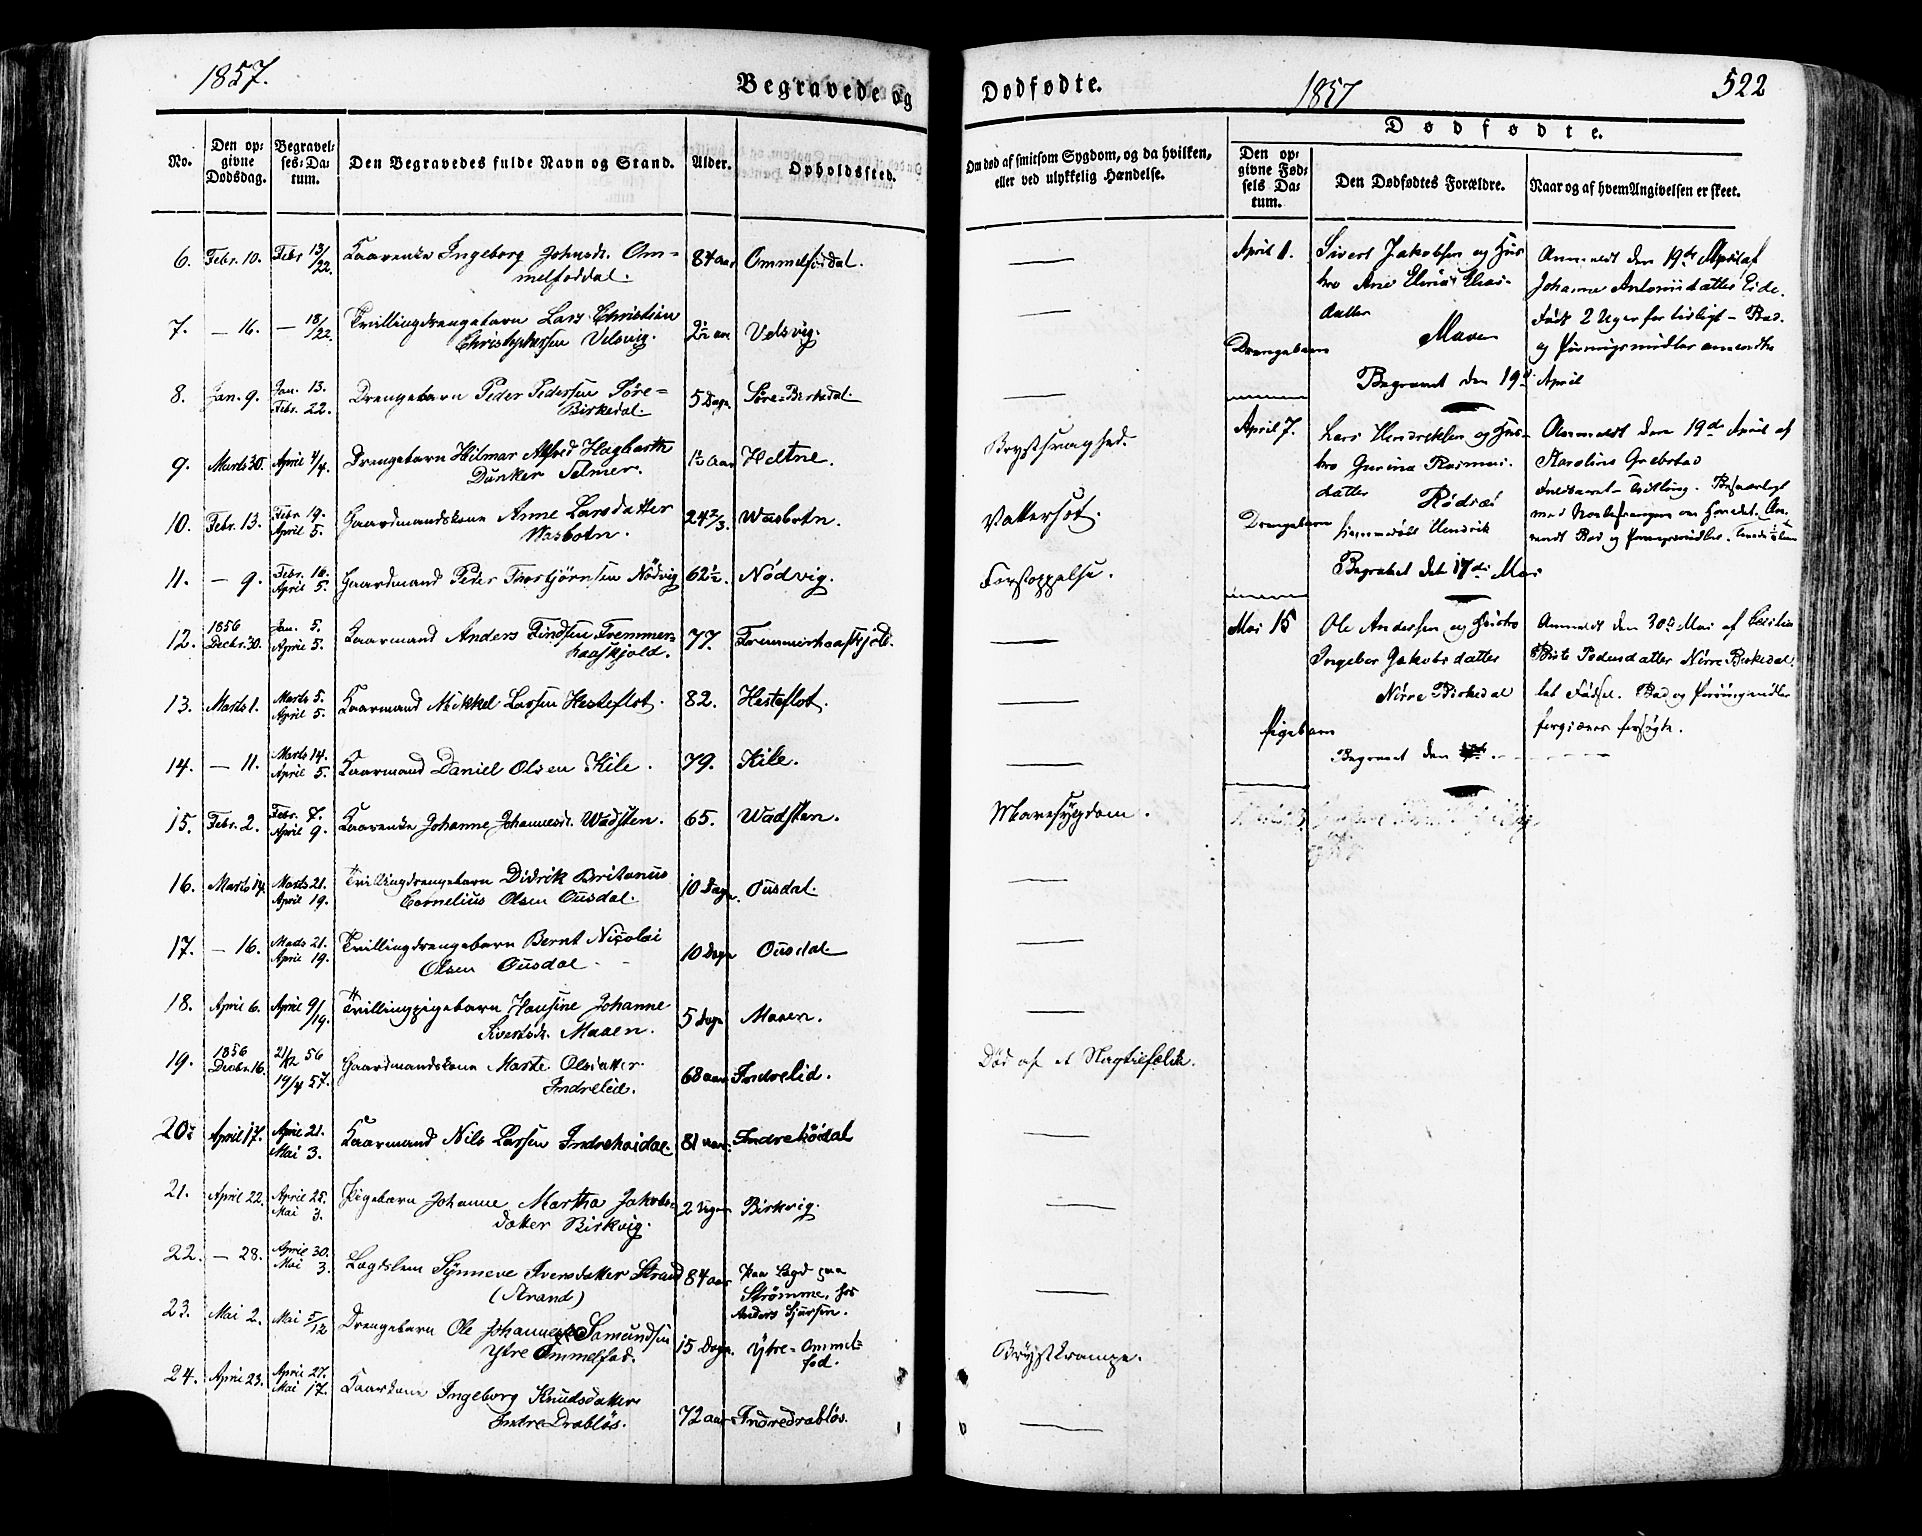 1857.
Begravede og
No.
Den opgivne Dødsdag.
Begravelses-Datum.
Den Begravedes fulde Navn og Stand.
Alder.
Opholdssted.
6. Febr. 10. Febr 13/22. Kaarenke Ingeborg Johnsdt. Om-
melfoddal. 84 aar Ommelfoddal.
7. — 16. — 18/22. Tvillingdrengebarn Lars Christian
Velsvig. 2½ Velsvig.
8. Jan. 9. Jan. 13. Febr. 22. Drengebarn Peder Pedersen Søre=
Birkedal. 5 Dage Søre=Birkedal.
9. Marts 30. April 4/4. Drengebarn Hilmar Alfred Hagbarth
Dunker Selmer. Heltne.
10. Febr. 13. Febr 19. April 5. Gaardmandskone Anne Larsdatter
Wasbotn. 24 2/3. Wasbotn.
11. — 9. Febr. 16. April 5. Gaardmand Peder Thorbjørnsen Nödvig 62½. Nödvig.
12. 1856 Decbr. 30. Jan. 5. April 5. Kaarmand Anders Findsen Fremmer-
haaskjold. 77. Fremmerhaaskjold.
13. Marts 1. Marts 5. April 5. Kaarmand Mikkel Larsen Hesteflot. 82. Hesteflot.
14. — 11. Marts 14. April 5. Kaarmand Daniel Olsen Kile. 79. Kile.
15. Febr. 2. Febr. 7. April 9. Kaarenke Johanne Johannesdt. Wadsten. 65. Wadsten.
16. Marts 14. Marts 21. April 19. Tvillingdrengebarn Didrik Britanus
Cornelius Olsen Ousdal. 10 Dage. Ousdal.
17. — 16. Marts 21. April 19. Tvillingdrengebarn Bernt Nicolai
Olsen Ousdal. 10 Dage Ousdal
18. April 6. April 9/19. Tvillingpigebarn Hansine Johanne
Sivertsdt. Maaen. 5 Dage Maaen.
19. 1856 Decbr. 16. 21/12 56 19/4 57. Gaardmandskone Marte Olsdatter
Indrelid. 68 aar Indrelid.
20. April 17. April 21. Mai 3. Kaarmand Nils Larsen Indrehöidal. 81 aar. Indrehöidal
21. April 22. April 25. Mai 3. Pigebarn Johanne Martha Jakobs-
datter Birkvig. 2 Uger Birkvig.
22. — 28. April 30. Mai 3. Lægdslem Synneve Iversdatter Strand
(Strand) 84 aar Paa Lægd paa
Strømme, hos
Anders Sjursen.
23. Mai 2. Mai 5/12 Drengebarn Ole Johannes Samundsen
Ytre Ommelfod. 15 Dage. Ytre=Ommel=
fod.
24. April 23. April 27. Mai 17. Kaarkone Ingeborg Knudsdatter
Indre Drabløs. 72 aar Indredrabløs.
Dødfødte.
1857
522
Om død af smitsom Sygdom, og da hvilken,
eller ved ulykkelig Hændelse.
Brystsvaghed.
Vattersot.
Forstoppelse.
Mavesygdom.
Død af et Slagtilfælde.
Brystkrampe.
Dødfødte.
Den opgivne Fødsels Datum.
Den Dødfødtes Forældre.
Naar og af hvem Angivelsen er skeet.
April 1. Sivert Jakobsen og Hus-
tro Ane Elias-
datter
Maaen
Drengebarn
Begravet den 19d April
Anmeldt den 19de April af
Johanne Antonsdatter Eide.
Født 2 Uger for tidligt — Bad
og
April 7. Lars Hendriksen og Hus-
tro Gurina Rasmus-
datter
Drengebarn
hjemmedøbt Hendrik
Begravet den 17de Mai
Anmeldt den 19de April af
Karoline Grebstad
Tvilling.
Mai 15 Ole Andersen og Hustro
Ingebor Jakobsdatter
Nørre Birkedal
Pigebarn
Begravet den
Anmeldt den 30d Mai af
Pedersdatter Nørre Birkedal.
let Fødsel. Bad og
forgjæves forsøgte.